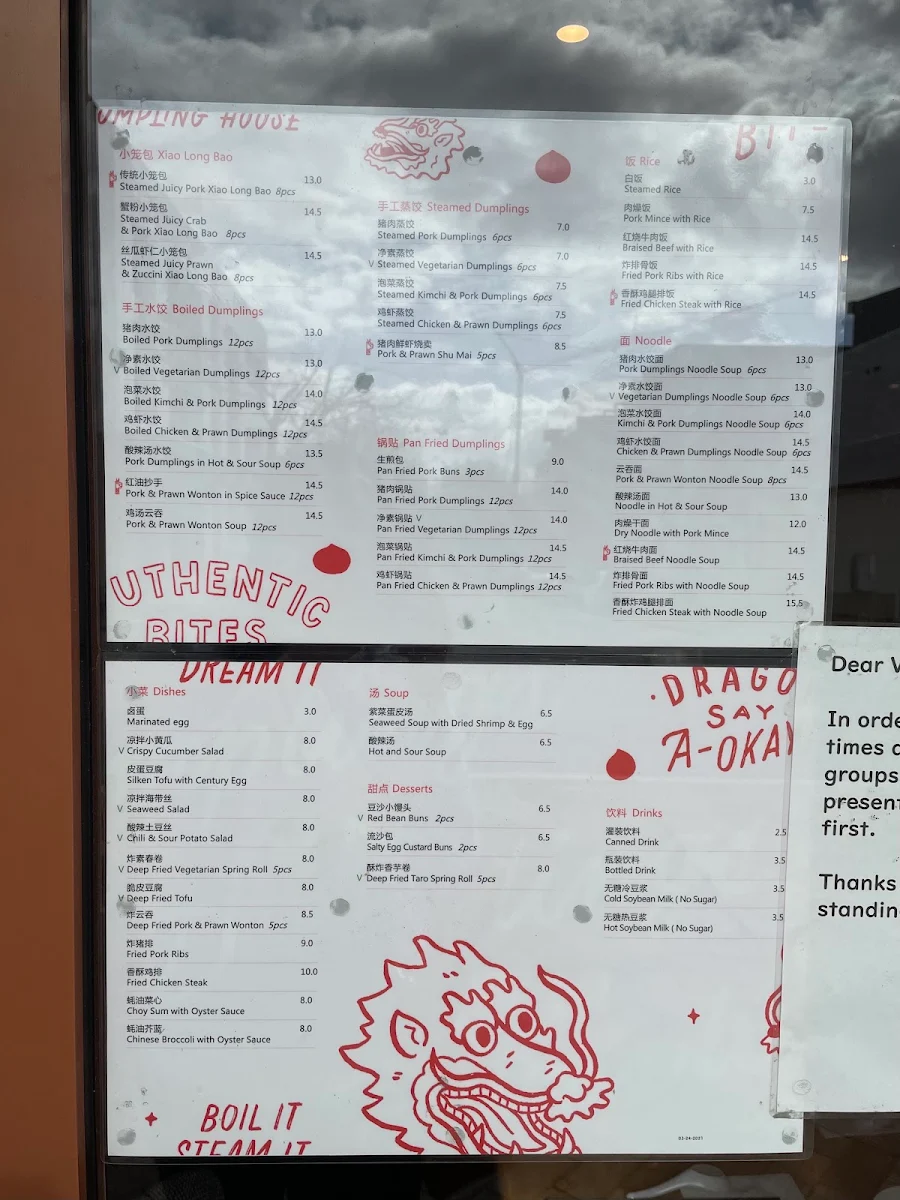 UMPLING HOUSE
小笼包 Xiao Long Bao
传统小笼包
Steamed Juicy Pork Xiao Long Bao 8pcs 13.0
蟹粉小笼包
Steamed Juicy Crab
& Pork Xiao Long Bao 8pcs 14.5
丝瓜虾仁小笼包
Steamed Juicy Prawn
& Zuccini Xiao Long Bao 8pcs 14.5
手工水饺 Boiled Dumplings
猪肉水饺
Boiled Pork Dumplings 12pcs 13.0
净素水饺
V Boiled Vegetarian Dumplings 12pcs 13.0
泡菜水饺
Boiled Kimchi & Pork Dumplings 12pcs 14.0
鸡虾水饺
Boiled Chicken & Prawn Dumplings 12pcs 14.5
酸辣汤水饺
Pork Dumplings in Hot & Sour Soup 6pcs 13.5
红油抄手
Pork & Prawn Wonton in Spice Sauce 12pcs 14.5
鸡汤云吞
Pork & Prawn Wonton Soup 12pcs 14.5
UTHENTIC
BITES
手工蒸饺 Steamed Dumplings
猪肉蒸饺
Steamed Pork Dumplings 6pcs 7.0
净素蒸饺
V Steamed Vegetarian Dumplings 6pcs 7.0
泡菜蒸饺
Steamed Kimchi & Pork Dumplings 6pcs 7.5
鸡虾蒸饺
Steamed Chicken & Prawn Dumplings 6pcs 7.5
猪肉鲜虾烧卖
Pork & Prawn Shu Mai 5pcs 8.5
锅贴 Pan Fried Dumplings
生煎包
Pan Fried Pork Buns 3pcs 9.0
猪肉锅贴
Pan Fried Pork Dumplings 12pcs 14.0
净素锅贴 V
Pan Fried Vegetarian Dumplings 12pcs 14.0
泡菜锅贴
Pan Fried Kimchi & Pork Dumplings 12pcs 14.5
鸡虾锅贴
Pan Fried Chicken & Prawn Dumplings 12pcs 14.5
饭 Rice
白饭
Steamed Rice 3.0
肉燥饭
Pork Mince with Rice 7.5
红烧牛肉饭
Braised Beef with Rice 14.5
炸排骨饭
Fried Pork Ribs with Rice 14.5
香酥鸡腿排饭
Fried Chicken Steak with Rice 14.5
面 Noodle
猪肉水饺面
Pork Dumplings Noodle Soup 6pcs 13.0
净素水饺面
V Vegetarian Dumplings Noodle Soup 6pcs 13.0
泡菜水饺面
Kimchi & Pork Dumplings Noodle Soup 6pcs 14.0
鸡虾水饺面
Chicken & Prawn Dumplings Noodle Soup 6pcs 14.5
云吞面
Pork & Prawn Wonton Noodle Soup 8pcs 14.5
酸辣汤面
Noodle in Hot & Sour Soup 13.0
肉燥干面
Dry Noodle with Pork Mince 12.0
红烧牛肉面
Braised Beef Noodle Soup 14.5
炸排骨面
Fried Pork Ribs with Noodle Soup 14.5
香酥炸鸡腿排面
Fried Chicken Steak with Noodle Soup 15.5
DREAM IT
小菜 Dishes
卤蛋
Marinated egg 3.0
凉拌小黄瓜
V Crispy Cucumber Salad 8.0
皮蛋豆腐
Silken Tofu with Century Egg 8.0
凉拌海带丝
V Seaweed Salad 8.0
酸辣土豆丝
V Chili & Sour Potato Salad 8.0
炸素春卷
V Deep Fried Vegetarian Spring Roll 5pcs 8.0
脆皮豆腐
V Deep Fried Tofu 8.0
炸云吞
Deep Fried Pork & Prawn Wonton 5pcs 8.5
炸猪排
Fried Pork Ribs 9.0
香酥鸡排
Fried Chicken Steak 10.0
蚝油菜心
Choy Sum with Oyster Sauce 8.0
蚝油芥蓝
Chinese Broccoli with Oyster Sauce 8.0
BOIL IT
STEAM IT
汤 Soup
紫菜蛋皮汤
Seaweed Soup with Dried Shrimp & Egg 6.5
酸辣汤
Hot and Sour Soup 6.5
甜点 Desserts
豆沙小馒头
V Red Bean Buns 2pcs 6.5
流沙包
Salty Egg Custard Buns 2pcs 6.5
酥炸香芋卷
V Deep Fried Taro Spring Roll 5pcs 8.0
DRAGO
SAY
A-OKAY
饮料 Drinks
灌装饮料
Canned Drink 2.5
瓶装饮料
Bottled Drink 3.5
无糖冷豆浆
Cold Soybean Milk ( No Sugar) 3.5
无糖热豆浆
Hot Soybean Milk ( No Sugar) 3.5
Dear V
In orde
times a
groups
present
first.
Thanks
standin